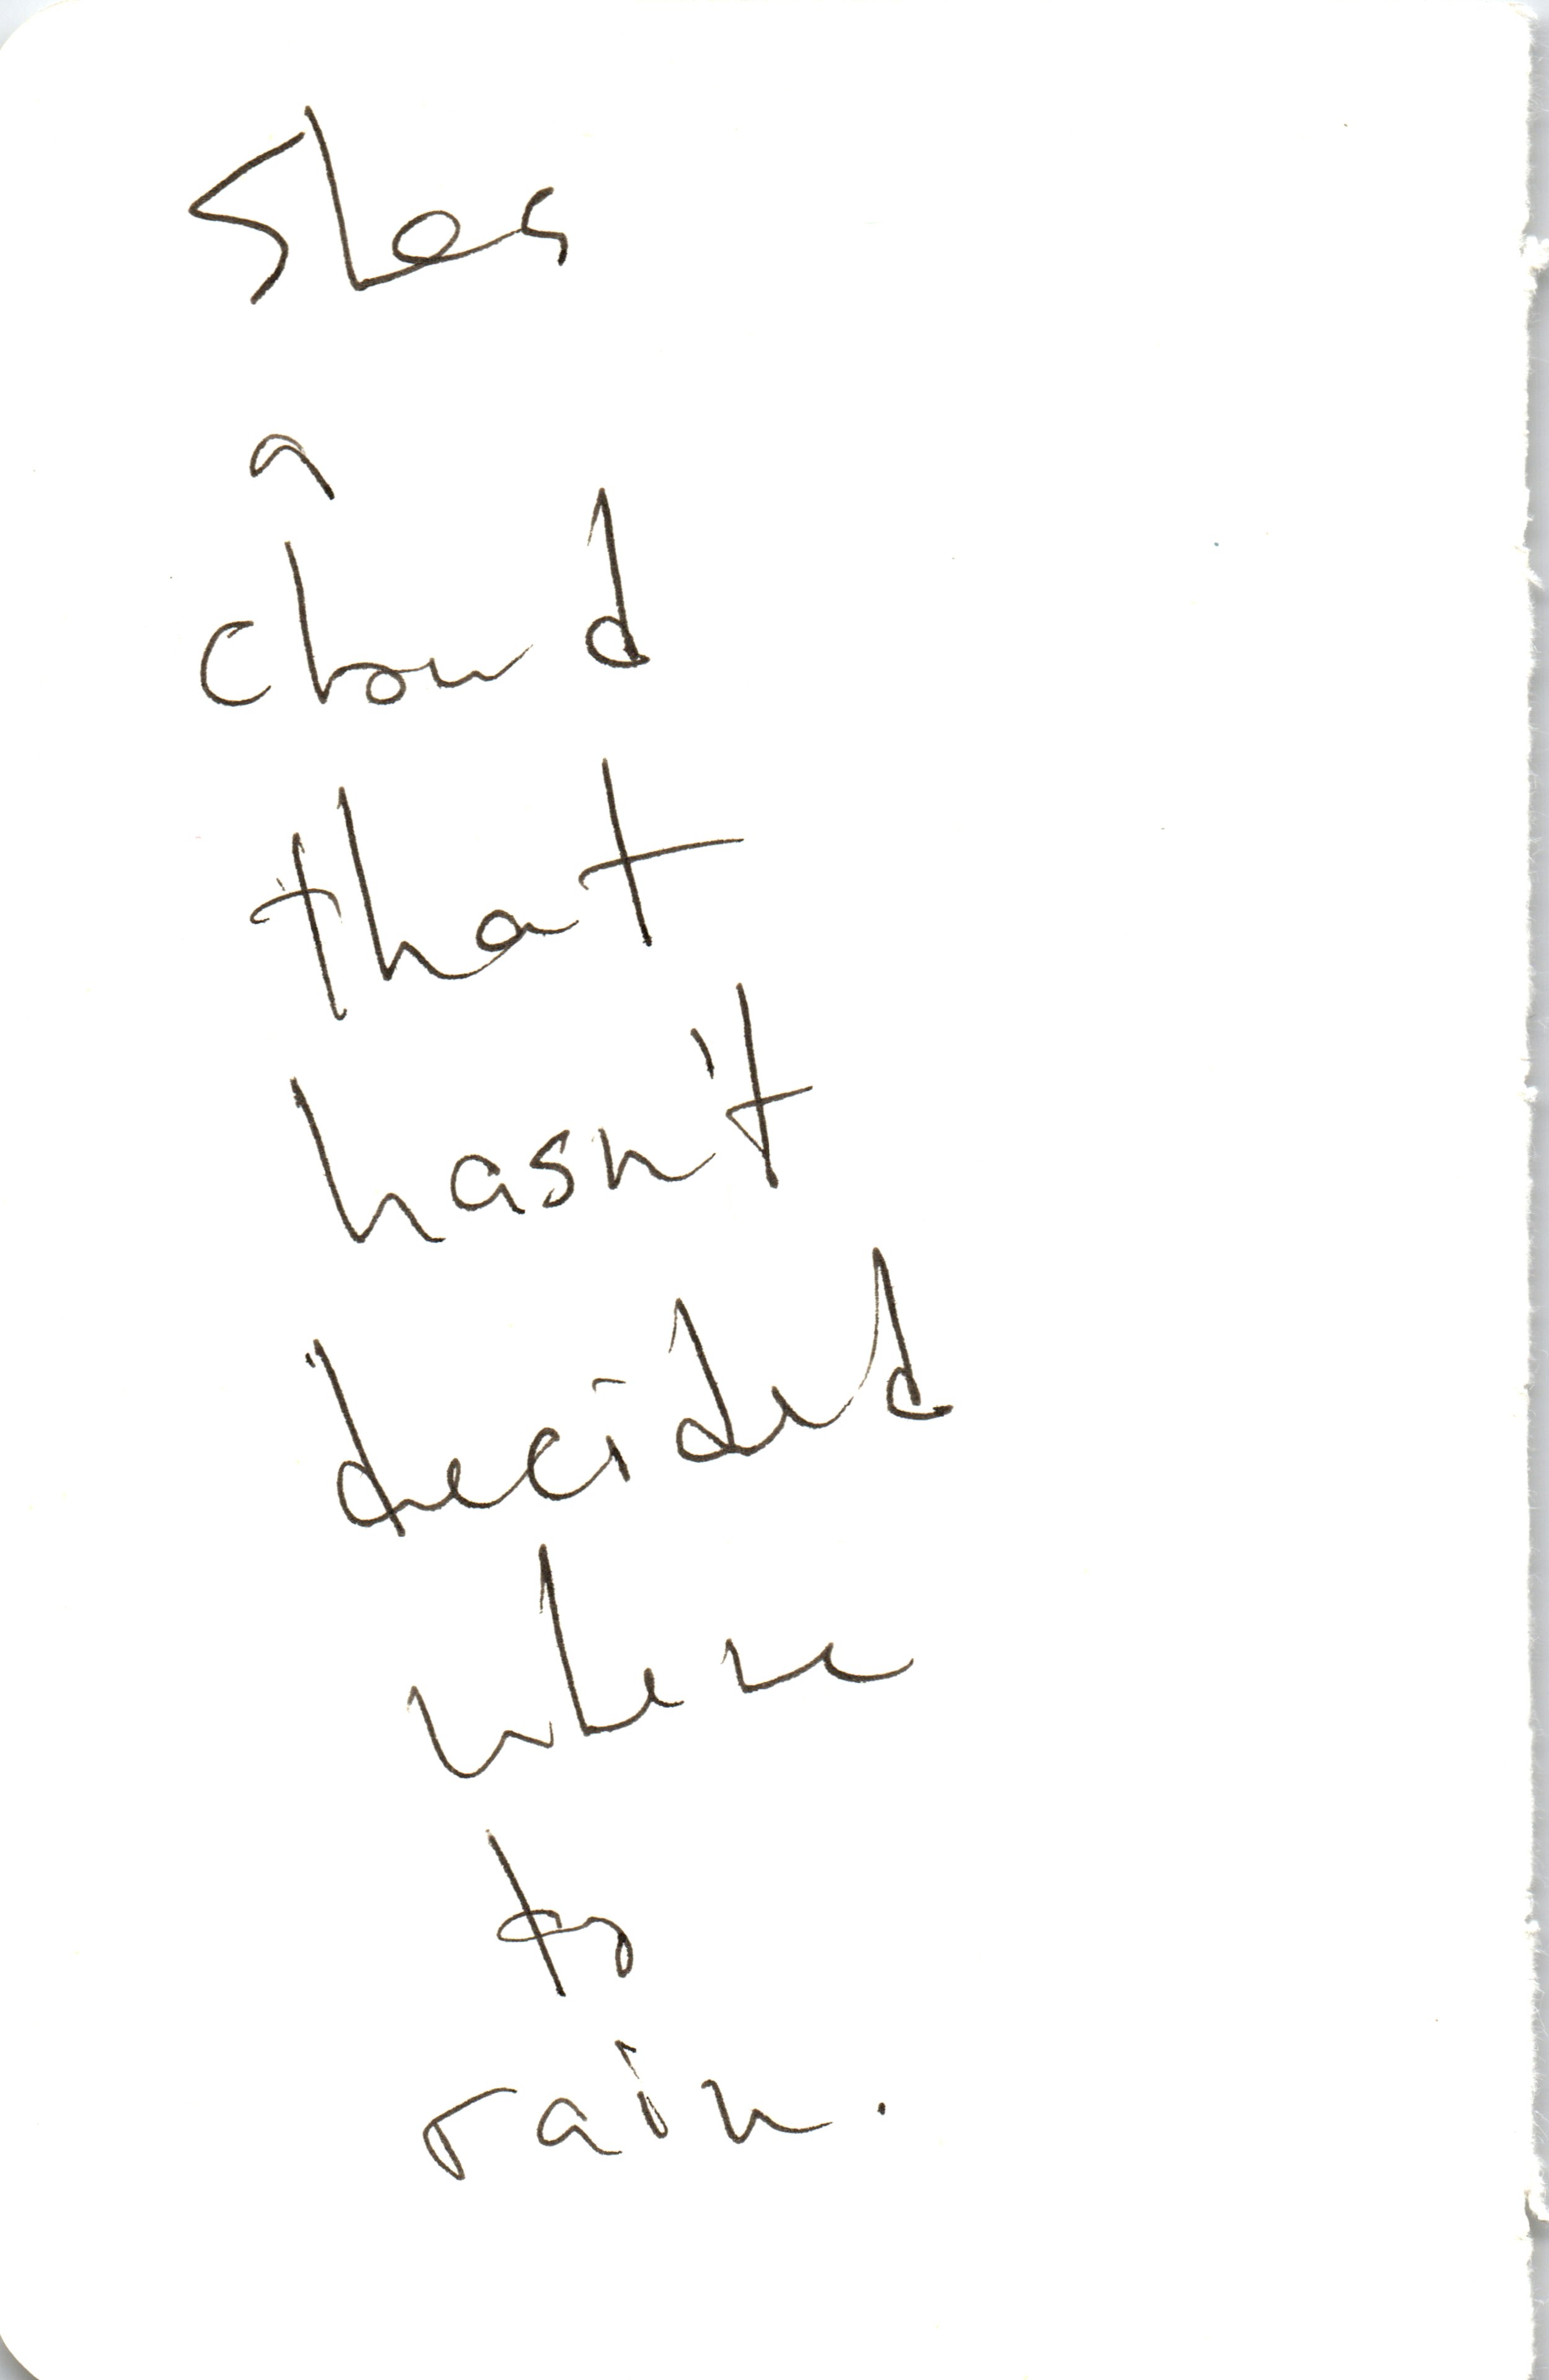 Shes
a
cloud
that
hasn't
decided
where
to
rain.